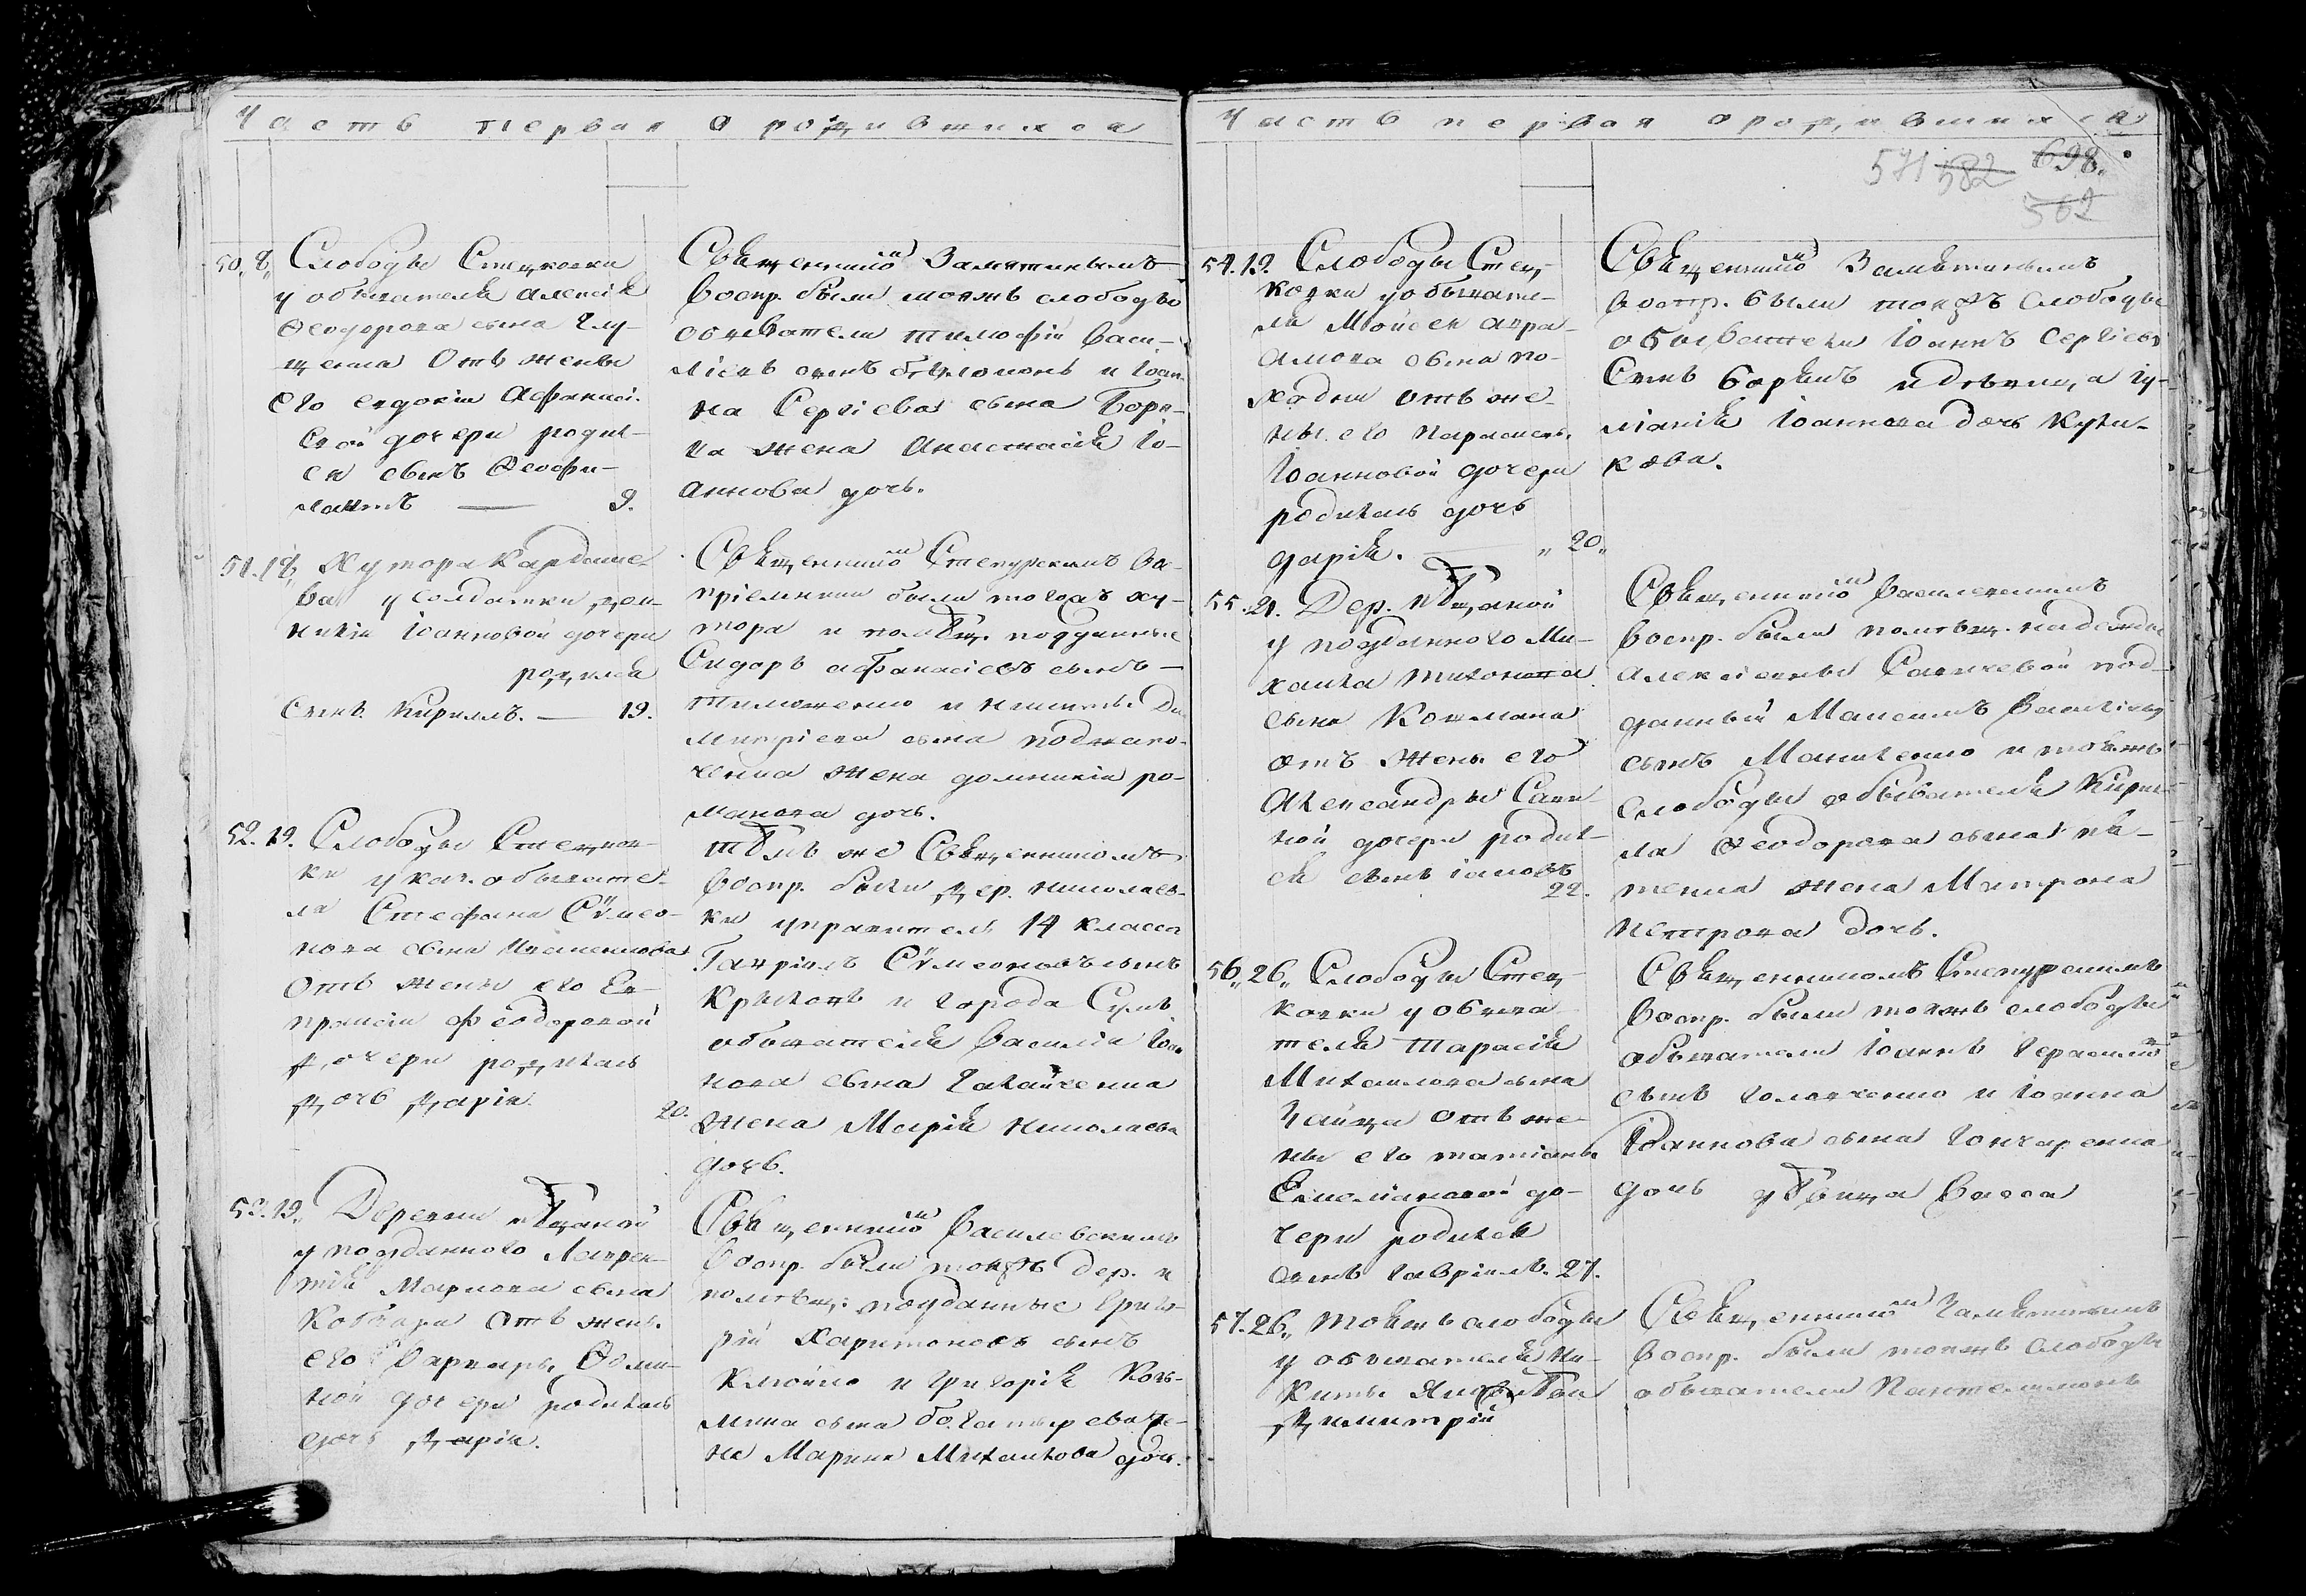 Часть первая о родившихся
50. 8. Слободы Стецковки
у обывателя Алексѣя
Ѳеодорова сына Глу-
щенка отъ жены
его Евдокіи Афанасі-
евой дочери родил-
ся сынъ Ѳеофи-
лактъ — 9.
Священникомъ Замятинымъ
воспр. были тояжъ слободы
обыватели Тимофій Васи-
ліевъ сынъ и Іоан-
на Сергіева сына Бори-
са жена Анастасія Іо-
аннова дочь.
51. 18. Хутора Кардаше-
ва у солдатки Дом-
никіи Іоанновой дочери
родился
сынъ Кириллъ. — 19.
Священникомъ Степурскимъ во-
пріемники были тогожъ ху-
тора и помѣщ. подданные
Сидоръ Афанасіевъ сынъ
Тимошенко и Ди-
митріева сына
жена Домникія Ро-
манова дочь.
52. 19. Слободы Стецков-
ки у каз. обывате-
ля Стефана Сѵмео-
нова сына Игнатенкова
отъ жены его Ев-
праксіи Феодоровой
дочери родилась
дочь Дарія. 20.
Тѣмъ же Священникомъ
воспр. были дер. Николаев-
ки управитель 14 класса
Гавріилъ Сѵмеоновъ сынъ
и города Сумъ
обывателя Василія Іоан-
нова сына Гакайченка
жена Марія Николаева
дочь.
53. 19. Деревни Пѣщаной
у подданного Лаврен-
тія Маркова сына
Кобзаря отъ жены
его Варвары Ѳоми-
ной дочери родилась
дочь Дарія.
Священникомъ Василевскимъ
воспр. были тойжъ дер. и
помѣщ. подданные Григо-
рій Харитоновъ сынъ
и Григорія Козь-
мина сына Богатырева же-
на Марина Михаилова дочь.
Часть первая о родившихся
571 582 698.
562
54. 19. Слободы Стец-
ковки у обывате-
ля Моисея Авра-
амова сына По-
ходни отъ же-
ны его Параскевы
Іоанновой дочери
родилась дочь
Дарія. — „ 20„
Священникомъ Замятинымъ
воспр. были тояжъ слободы
обыватели Іоаннъ Сергіевъ
сынъ Борысъ и дѣвица Іу-
ліанія Іоаннова дочь Кули-
кова.
55. 21. Дер. Пѣщаной
у подданного Ми-
хаила Тихонова
сына Коżмана
отъ жены его
Александры Савви-
ной дочери родил-
ся сынъ Іаковъ
22.
Священникомъ Василевскимъ
воспр. были помѣщ. Надежды
Алексіевны Савичевой под-
данный Максимъ Васильевъ
сынъ Манченко и тояжъ
слободы обывателя Кирил-
ла Ѳеодорова сына
жена Матрона
Петрова дочь.
56„ 26„ Слободы Стец-
ковки у обыва-
теля Тарасія
Михаилова сына
Зайца отъ же-
ны его Татіаны
Емеліановой до-
чери родился
сынъ Гавріилъ. 27.
Священникомъ Степурскимъ
воспр. были тояжъ слободы
обыватели Іоаннъ Герасимовъ
сынъ Головченко и Іоанна
Іоаннова сына Гончаренка
дочь дѣвица Васса
57. 26„ Тояжъ слободы
у обывателя Ни-
киты
Димитрій
Священникомъ Замятинымъ
воспр. были тояжъ слободы
обыватели Пантелимонъ